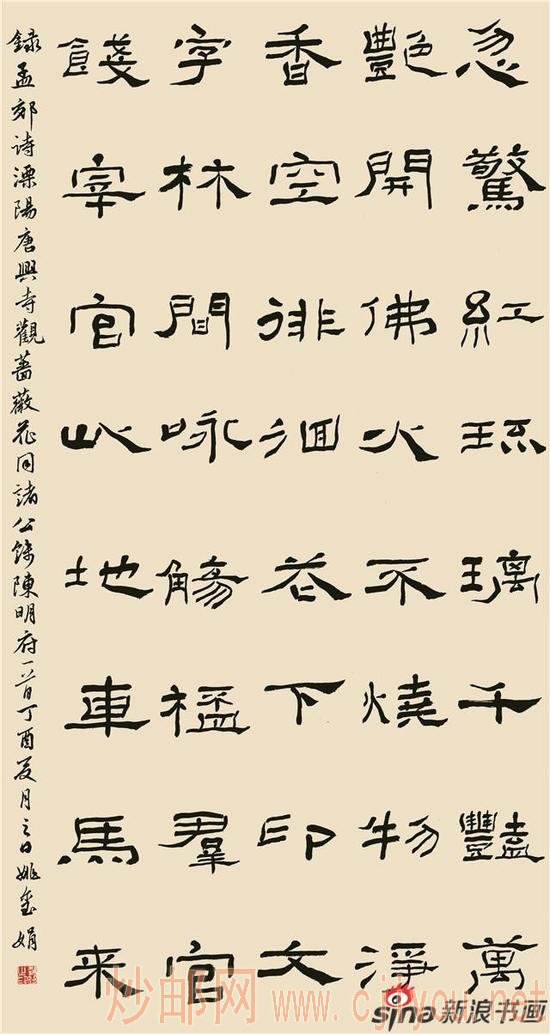 忽驚紅琉璃千豔萬
艷開佛火不燒物淨
香空徘徊花下印文
字林間咏觴羣官
餞宰官此地車馬来
録孟郊诗溧陽唐興寺觀薔薇花同諸公餞陳明府一首丁酉夏月之日姚玺娟
炒邮网 www.cjiyou.net
sina 新浪书画